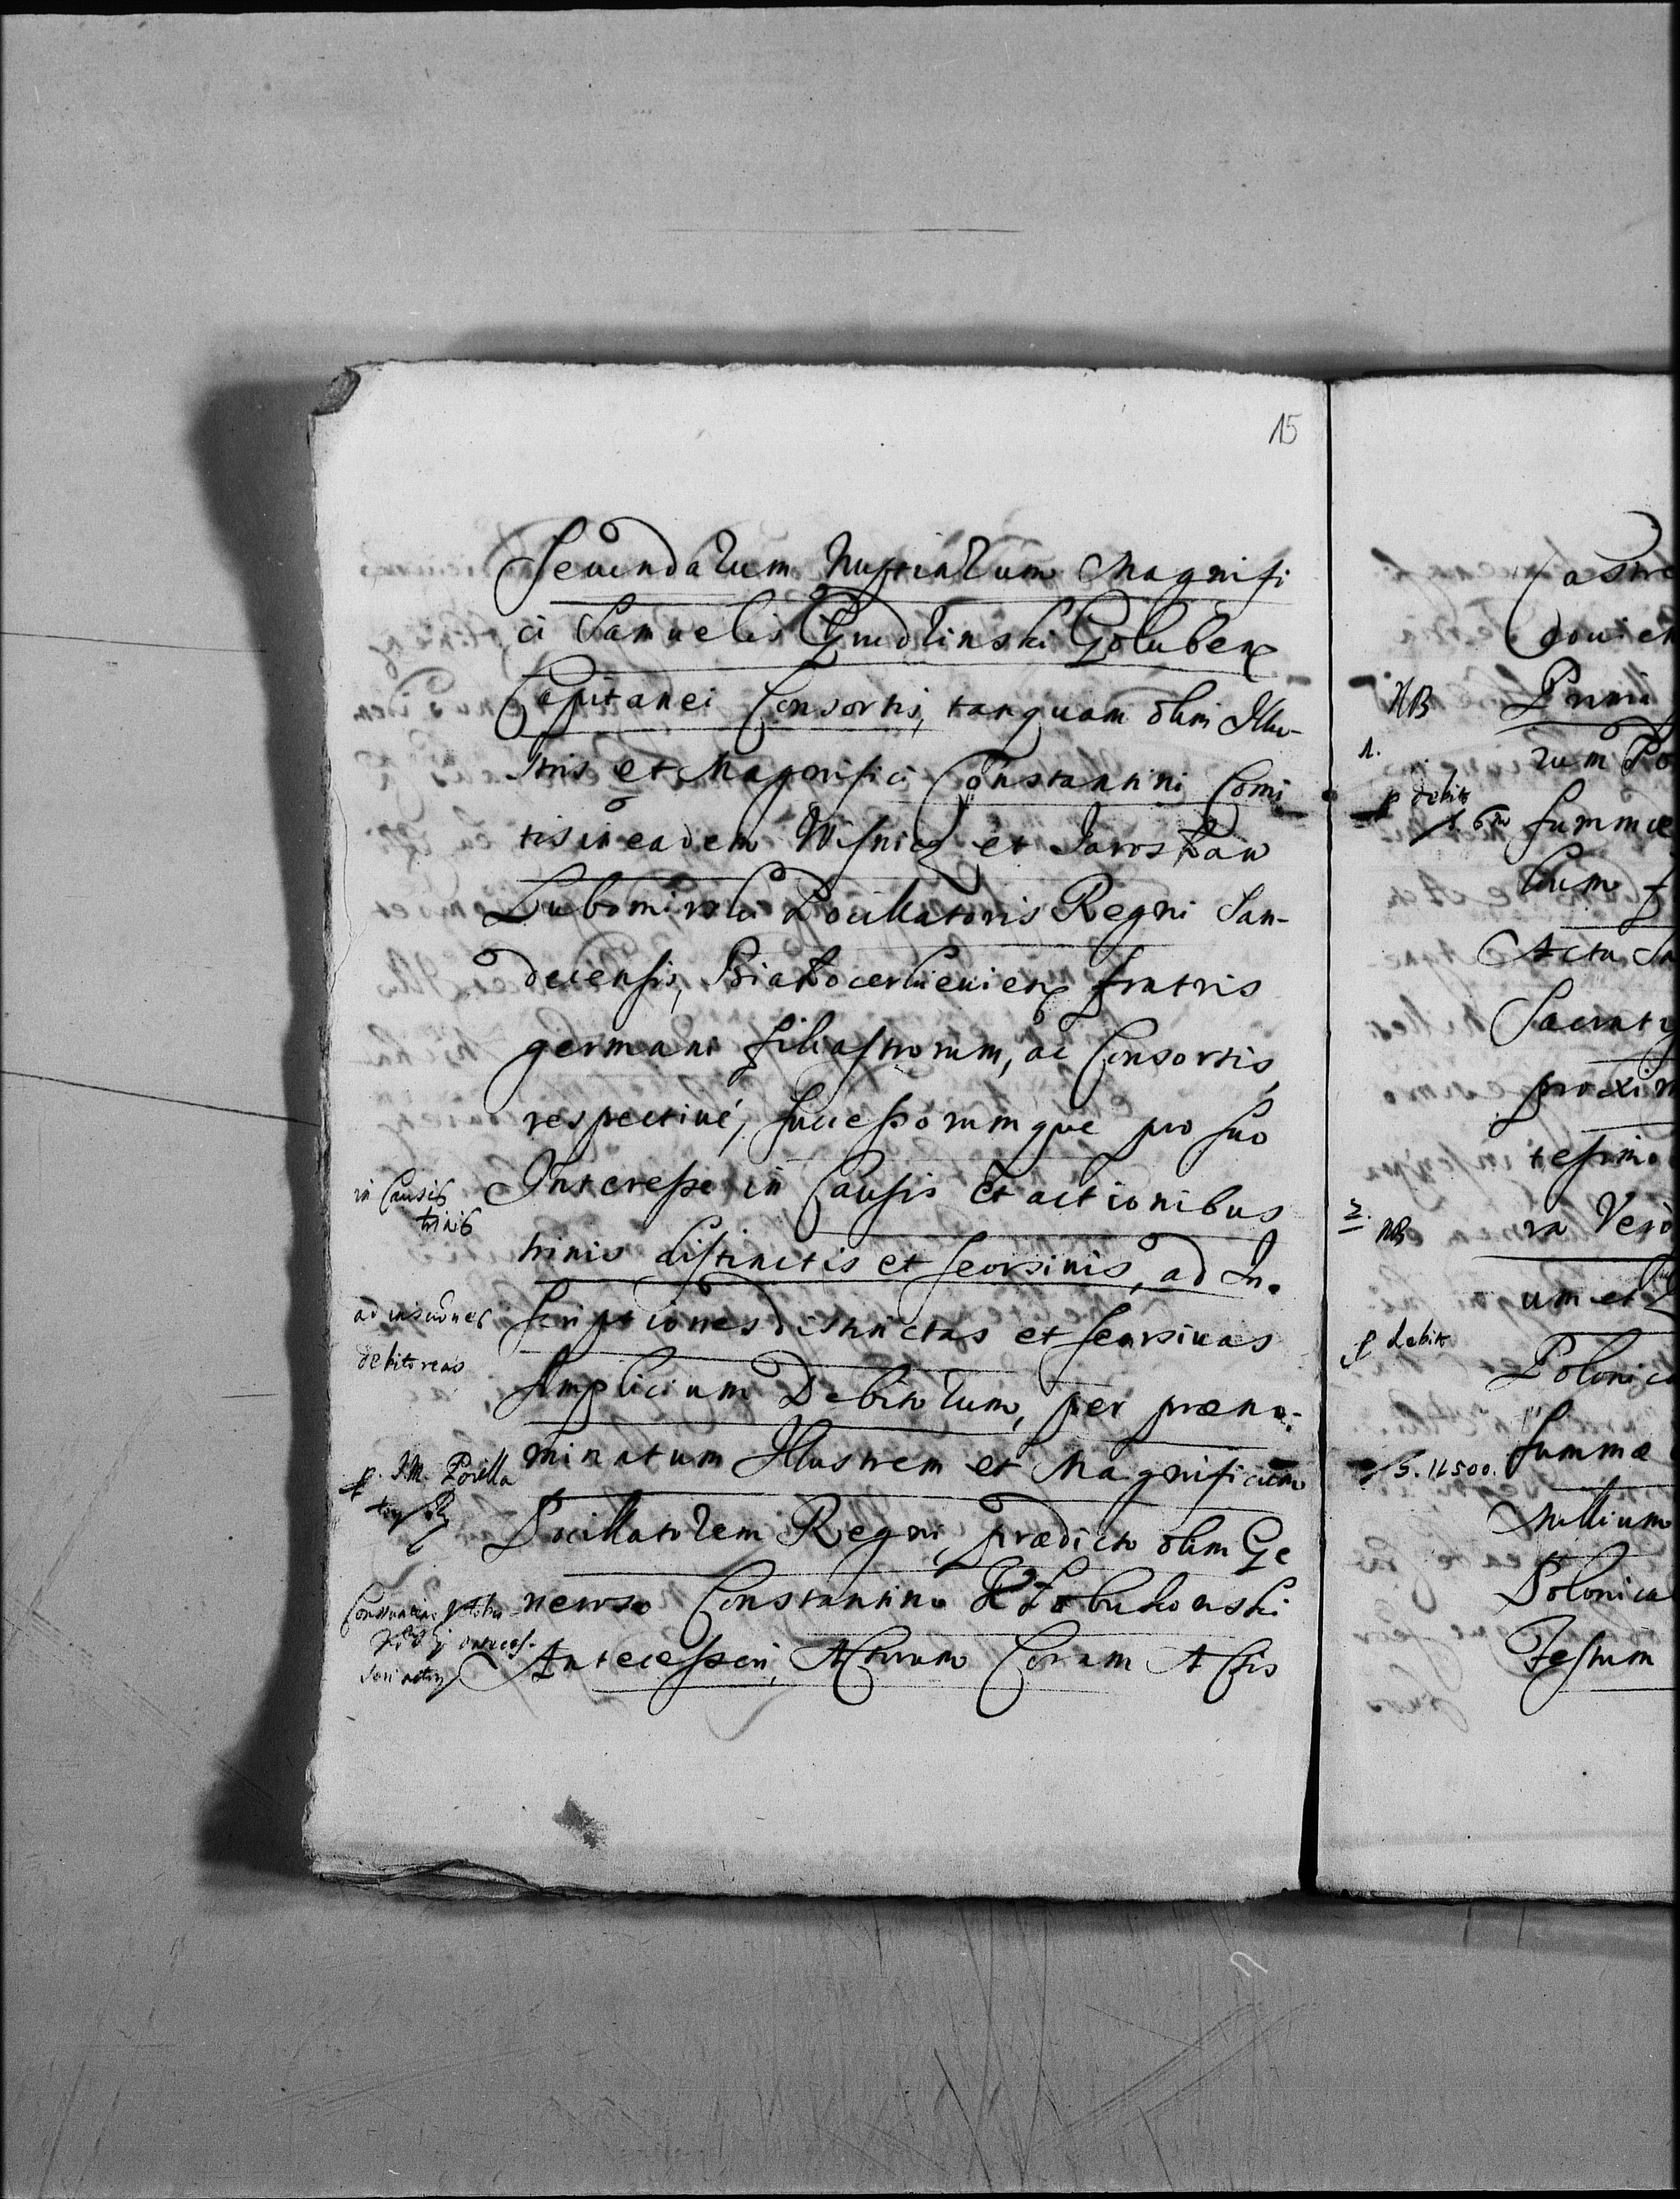 15
Secundarum Nuptiarum Magnifi
ci Samuelis Grudzinski Golubens
Capitanei Consortis, tanquam olim Illu-
stris et Magnifici Constantini Comi
tis in eadem Wisnicz et Jarosław
Lubomirski Pocillatoris Regni San-
decensis, Białocerkieviens fratris
germani filiastrorum, ac Consortis,
respective, successorumque pro suo
Interesse in Causis et actionibus
trinis distinctis et seorsivis, ad In-
scriptiones distinctas et seorsivas
simplicium Debitorum, per præno-
minatum Illustrem et Magnificum
Pocillatorem Regni, prædicto olim Ge
neroso Constantino Kłobukowski
Antecessori, Actorum Coram Actis
in Causis
trinis
ad inscrones
debitoreas
p. I.M. Pocilla
Constantino
antecess-
sori
Castre
doviens
NB Prima
1. rum Po
p debito
s. 6 m summæ
Actu Sa
Sacrati
proxim
tesimo
2. NB ra Vero
um et
p debito
Polonica
s. 11500. summæ
Millium
Polonica
Festum